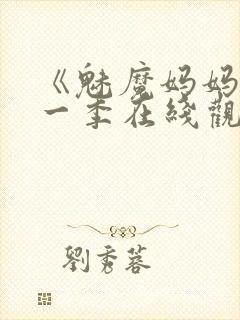 《魅魔妈妈
一季在线觀
劉秀蓉